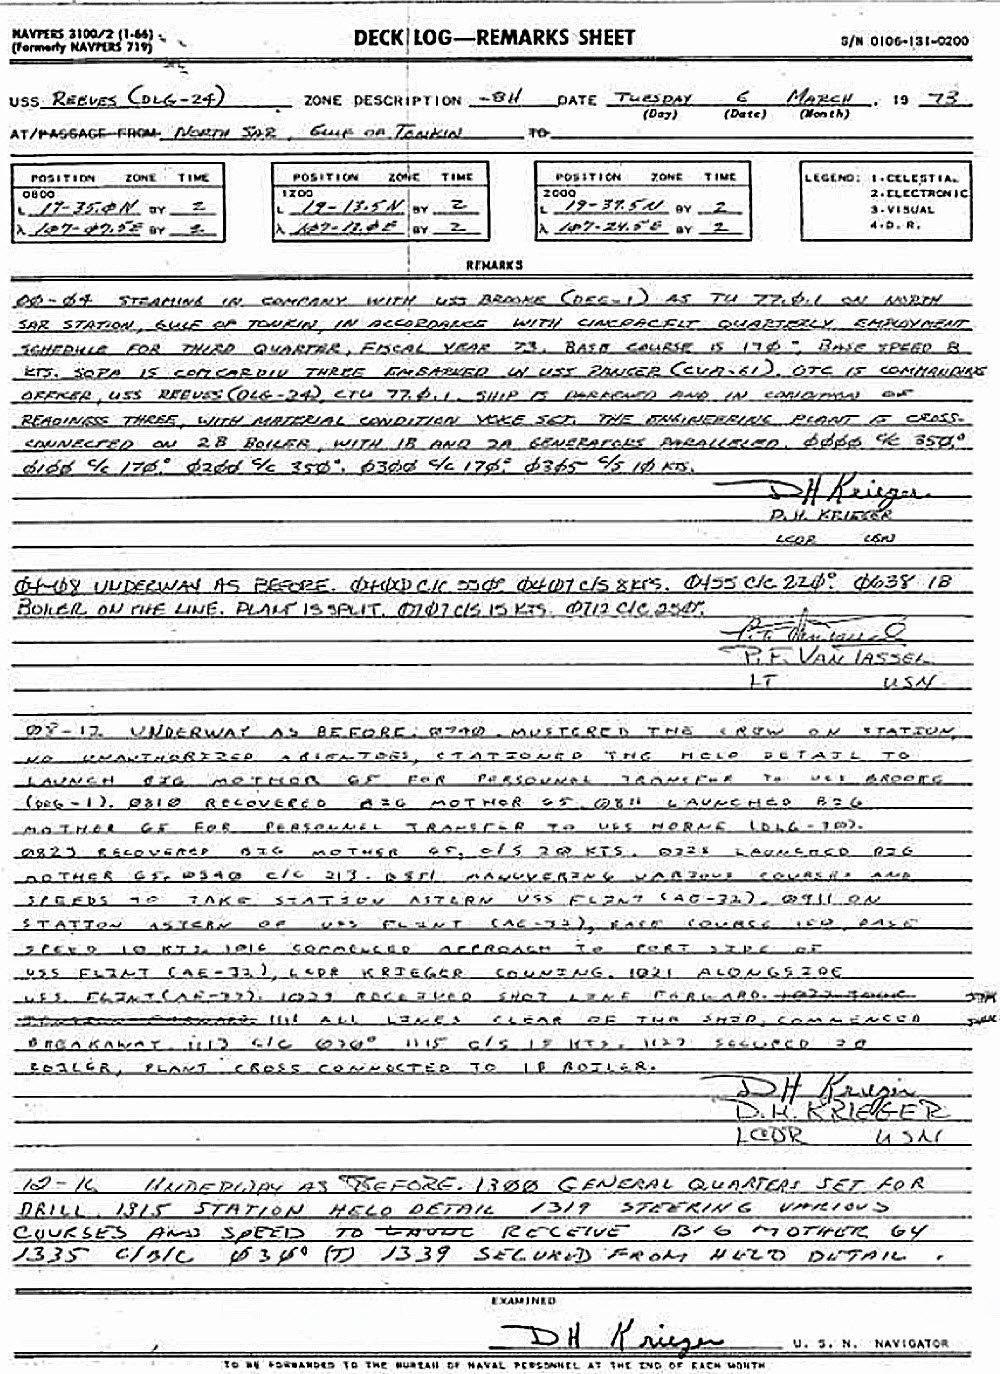 NAVPERS 3100/2 (1-66)
(Formerly NAVPERS 719)
DECK LOG—REMARKS SHEET
S/N 0106-131-0200
USS REEVES (DLG-24) ZONE DESCRIPTION -8H DATE TUESDAY 6 MARCH, 19 73
(Day) (Date) (Month)
AT/PASSAGE FROM NORTH SAR, GULF OF TONKIN TO
POSITION ZONE TIME
0800
L 19-35.0N BY 2
λ 107-07.5E BY 2
POSITION ZONE TIME
1200
L 19-13.5N BY 2
λ 107-12.0E BY 2
POSITION ZONE TIME
2000
L 19-37.5N BY 2
λ 107-24.5E BY 2
LEGEND: 1-CELESTIAL
2-ELECTRONIC
3-VISUAL
4-D. R.
REMARKS
00-04 STEAMING IN COMPANY WITH USS BROOKE (DEG-1) AS TU 77.0.1 ON NORTH
SAR STATION, GULF OF TONKIN, IN ACCORDANCE WITH CINCPACFLT QUARTERLY EMPLOYMENT
SCHEDULE FOR THIRD QUARTER, FISCAL YEAR 73. BASE COURSE IS 170°, BASE SPEED 8
KTS. SOPA IS COMCARDIV THREE EMBARKED IN USS RANGER (CVA-61). OTC IS COMMANDING
OFFICER, USS REEVES (DLG-24), CTU 77.0.1. SHIP IS DARKENED AND IN CONDITION OF
READINESS THREE, WITH MATERIAL CONDITION YOKE SET. THE ENGINEERING PLANT IS CROSS-
CONNECTED ON 2B BOILER, WITH 1B AND 2A GENERATORS PARALLELED. 0000 C/C 350°
0100 C/C 170° 0200 C/C 350°. 0300 C/C 170° 0305 C/S 10 KTS.
DH Krieger
D.H. KRIEGER
LCDR USN
04-08 UNDERWAY AS BEFORE. 0400 C/C 350° 0407 C/S 8 KTS. 0455 C/C 220° 0638 1B
BOILER ON THE LINE. PLANT IS SPLIT. 0707 C/S 15 KTS. 0712 C/C 250°.
P. F. VAN TASSEL
LT USN
08-12 UNDERWAY AS BEFORE. 0740 MUSTERED THE CREW ON STATION,
NO UNAUTHORIZED ABSENTEES, STATIONED THE HELO DETAIL TO
LAUNCH BIG MOTHER 65 FOR PERSONNEL TRANSFER TO USS BROOKE
(DEG-1). 0810 RECOVERED BIG MOTHER 65. 0811 LAUNCHED BIG
MOTHER 65 FOR PERSONNEL TRANSFER TO USS HORNE (DLG-30).
0823 RECOVERED BIG MOTHER 65, C/S 20 KTS. 0828 LAUNCHED BIG
MOTHER 65. 0840 C/C 213. 0851 MANUVERING VARIOUS COURSES AND
SPEEDS TO TAKE STATION ASTERN USS FLINT (AE-32). 0911 ON
STATION ASTERN OF USS FLINT (AE-32), BASE COURSE 150, BASE
SPEED 10 KTS. 1016 COMMENCED APPROACH TO PORT SIDE OF
USS FLINT (AE-32), LCDR KRIEGER CONNING. 1021 ALONGSIDE
USS FLINT (AE-32). 1023 RECEIVED SHOT LINE FORWARD.
1111 ALL LINES CLEAR OF THE SHIP, COMMENCED
BREAKAWAY. 1113 C/C 030° 1115 C/S 15 KTS. 1123 SECURED 2B
BOILER, PLANT CROSS CONNECTED TO 1B BOILER.
DH Krieger
D.H. KRIEGER
LCDR USN
12-16 UNDERWAY AS BEFORE. 1300 GENERAL QUARTERS SET FOR
DRILL. 1315 STATION HELO DETAIL 1319 STEERING VARIOUS
COURSES AND SPEED TO RECEIVE BIG MOTHER 64
1335 C/B/C 030° (T) 1339 SECURED FROM HELO DETAIL.
EXAMINED
DH Krieger
U. S. N. NAVIGATOR
TO BE FORWARDED TO THE BUREAU OF NAVAL PERSONNEL AT THE END OF EACH MONTH